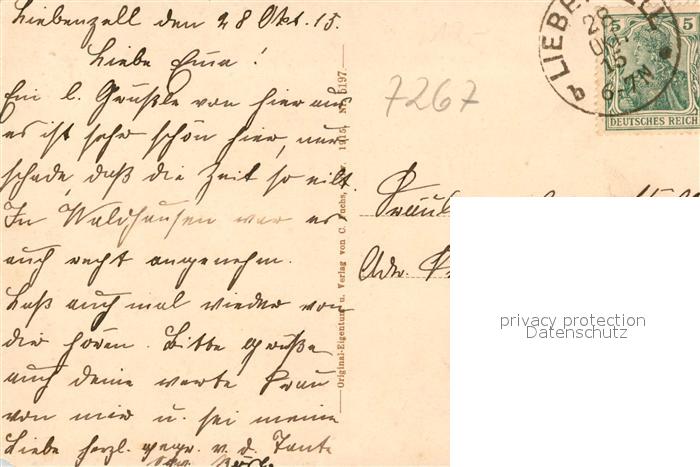 Liebenzell den 28 Okt. 15.
Liebe Emma!
Ein l. Grüßle von hier aus
es ist sehr schön hier, nur
schade, daß die Zeit so eilt.
In Waldhausen war es
auch recht angenehm.
Laß auch mal wieder von
dir hören. Bitte grüße
auch deine werte Frau
von mir u. sei meine
Liebe herzl. gegr. v. d. Tante
Original-Eigentum u. Verlag von C. Fuchs, 1915. Nr. 5197.
7267
LIEBENZELL
28
OKT
15
6-7 N
5
5
DEUTSCHES REICH
Fräul
Adr.
privacy protection
Datenschutz